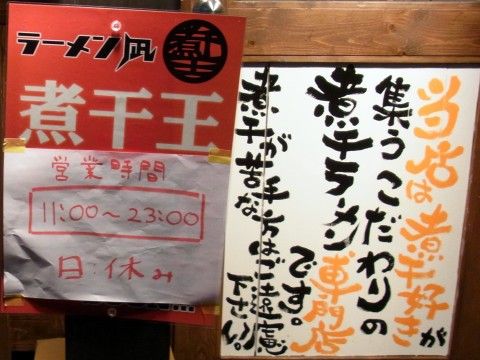 ラーメン凪
煮干王
煮干王
営業時間
11:00～23:00
日:休み
当店は煮干好きが
集うこだわりの
煮干ラーメン専門店
です。
煮干が苦手な方はご遠慮
下さい。